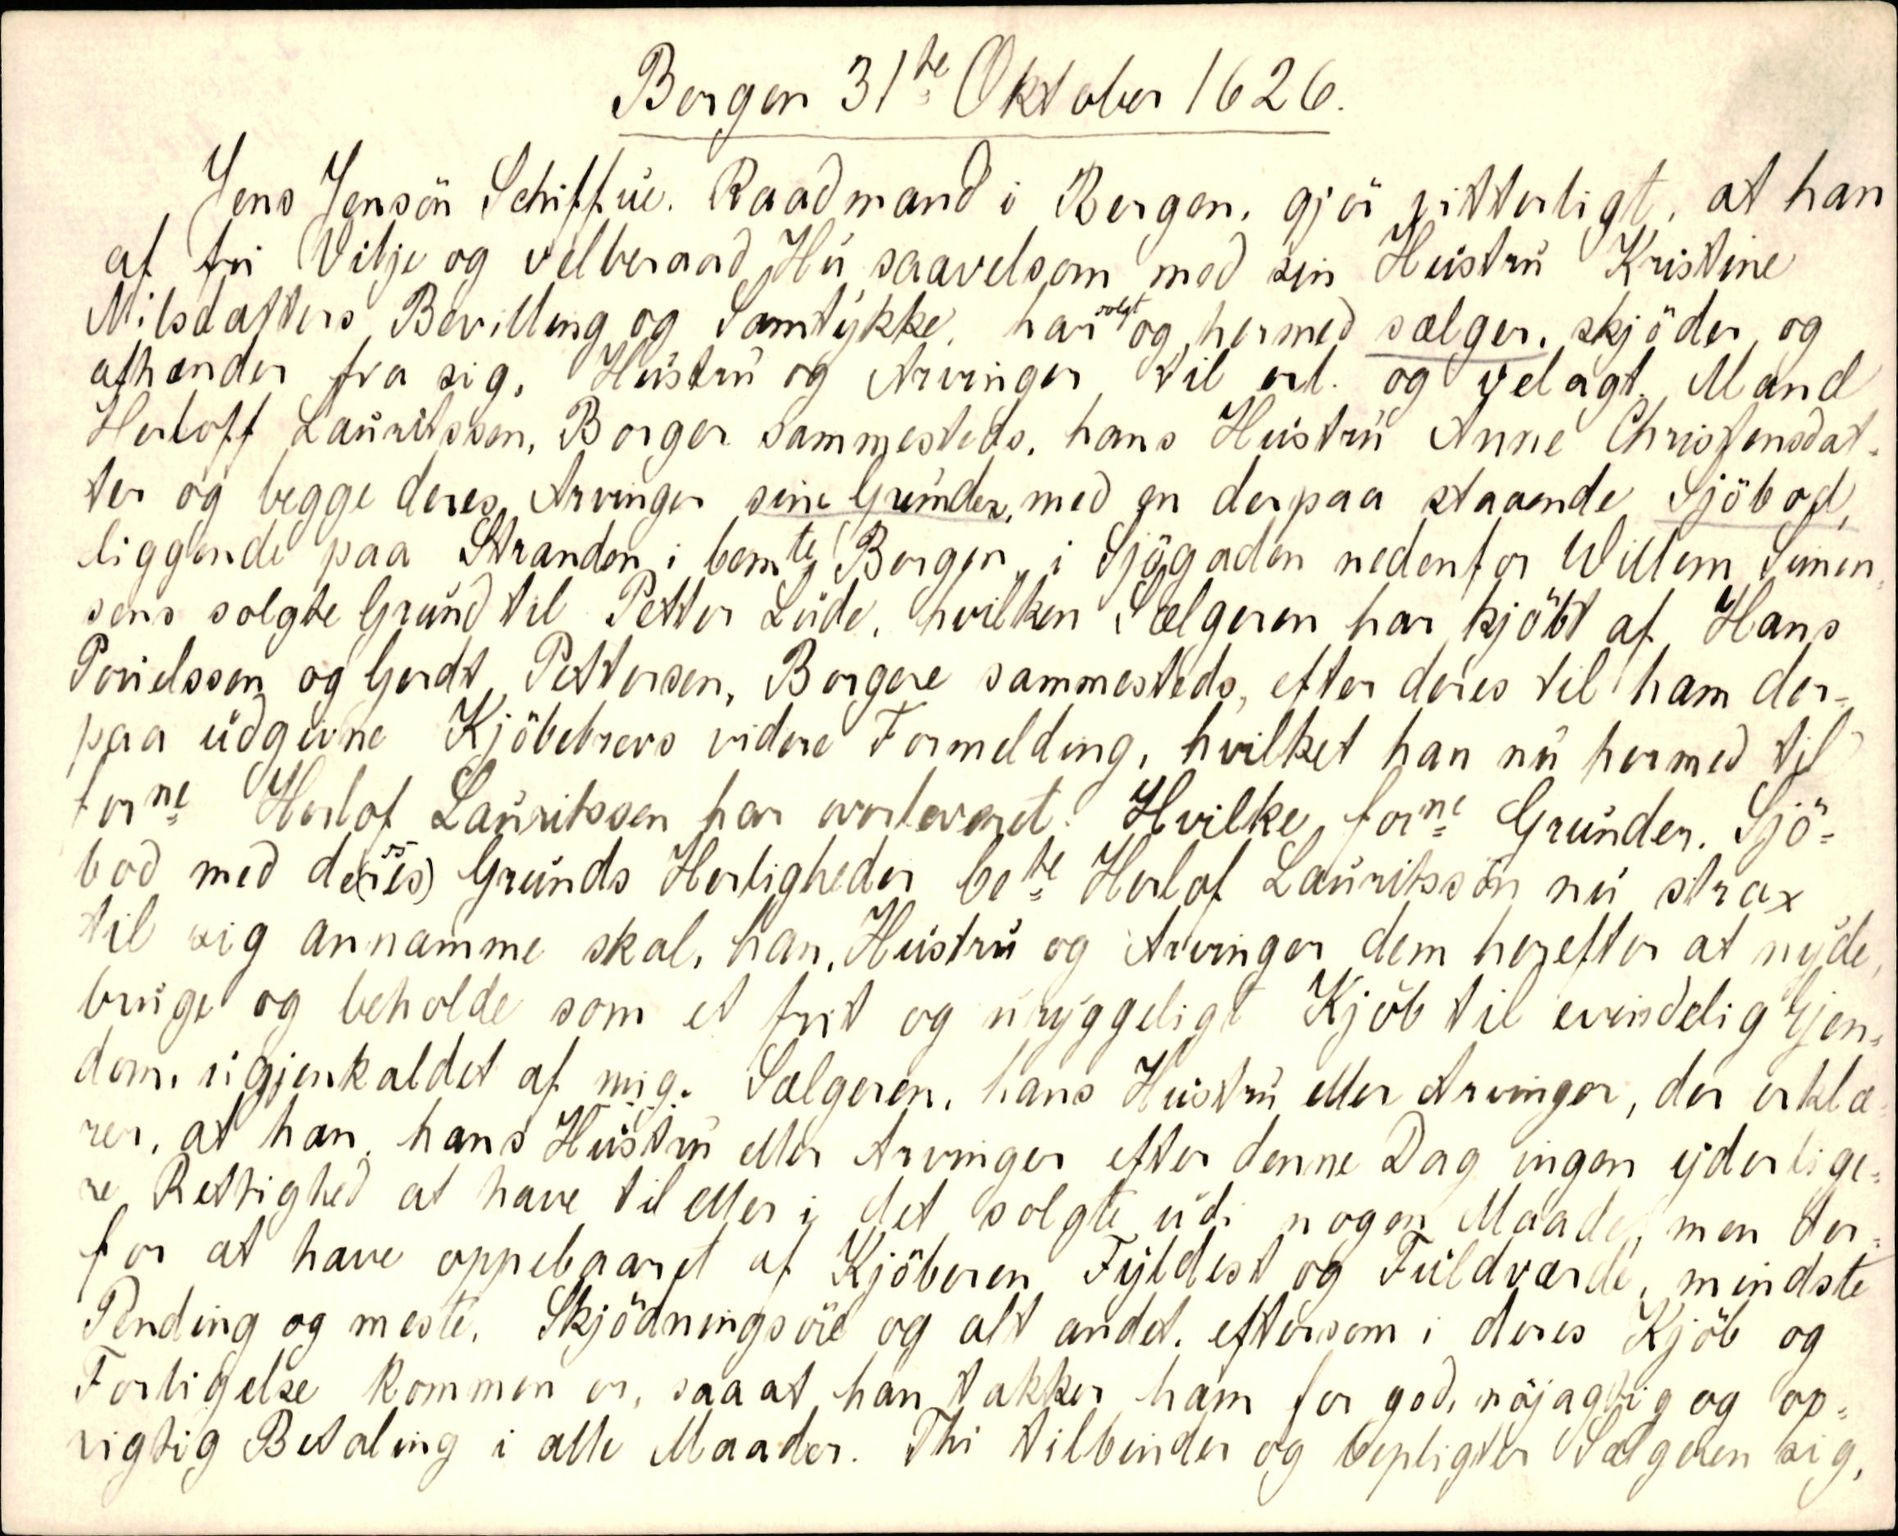 Bergen 31te Oktober 1626.
Jens Jensön Schiffue. Raadmand i Bergen, gjör vitterligt, at han
af fri Vilje og velberaad Hu saavelsom med sin Hustru Kristine
Nilsdatters Bevilling og Samtykke, har solgt og hermed sælger, skjöder og
afhænder fra sig, Hustru og Arvinger til erl. og velagt. Mand
Herloff Lauritssen, Borger sammesteds, hans Hustru Anne Christensdat-
ter og begge deres Arvinger sine Grunder, med en derpaa staaende Sjöbod,
liggende paa Stranden i bemte Bergen i Sjögaden nedenfor Willem Simen-
sens solgte Grund til Petter Lude, hvilken Sælgeren har kjöbt af Hans
Povelssen og Gerdt Pettersen, Borgere sammesteds, efter deres til ham der-
paa udgivne Kjöbebrevs videre Formelding, hvilket han nu hermed til
forne Herlof Lauritssen har overleveret. Hvilke forne Grunder, Sjö-
bod med de(res) Grunds Herligheder bete Herlof Lauritssön nu strax
til sig annamme skal, han, Hustru og Arvinger dem herefter at nyde,
bruge og beholde som et frit og uryggeligt Kjöb til evindelig Ejen-
dom, uigjenkaldet af mig. Sælgeren, hans Hustru eller Arvinger, der erklæ-
rer, at han, hans Hustru eller Arvinger efter denne Dag ingen yderlige-
re Rettighed at have til eller i det solgte udi nogen Maade, men der-
for at have oppebaaret af Kjöberen Fyldest og Fuldværde, mindste
Pending og meste, Skjödningsöre og alt andet, eftersom i deres Kjöb og
Forligelse kommen er, saa at han takker ham for god, nöjagtig og op-
rigtig Betaling i alle Maader. Thi tilbinder og bepligter Sælgeren sig,